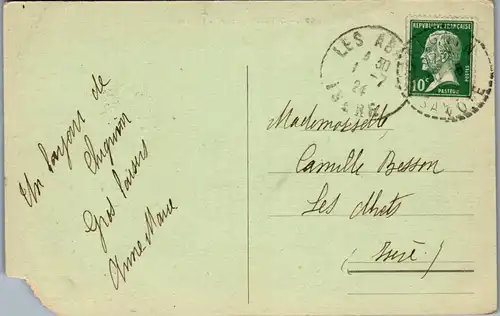 Un bonjour de
Chignin
Gros baisers
Anne Marie
LES AB
1 -7
24
ISERE
REPUBLIQUE FRANCAISE
10c
POSTES
PASTEUR
SAVOIE
Mademoiselle
Camille Besson
Les Abrets
(Isère)